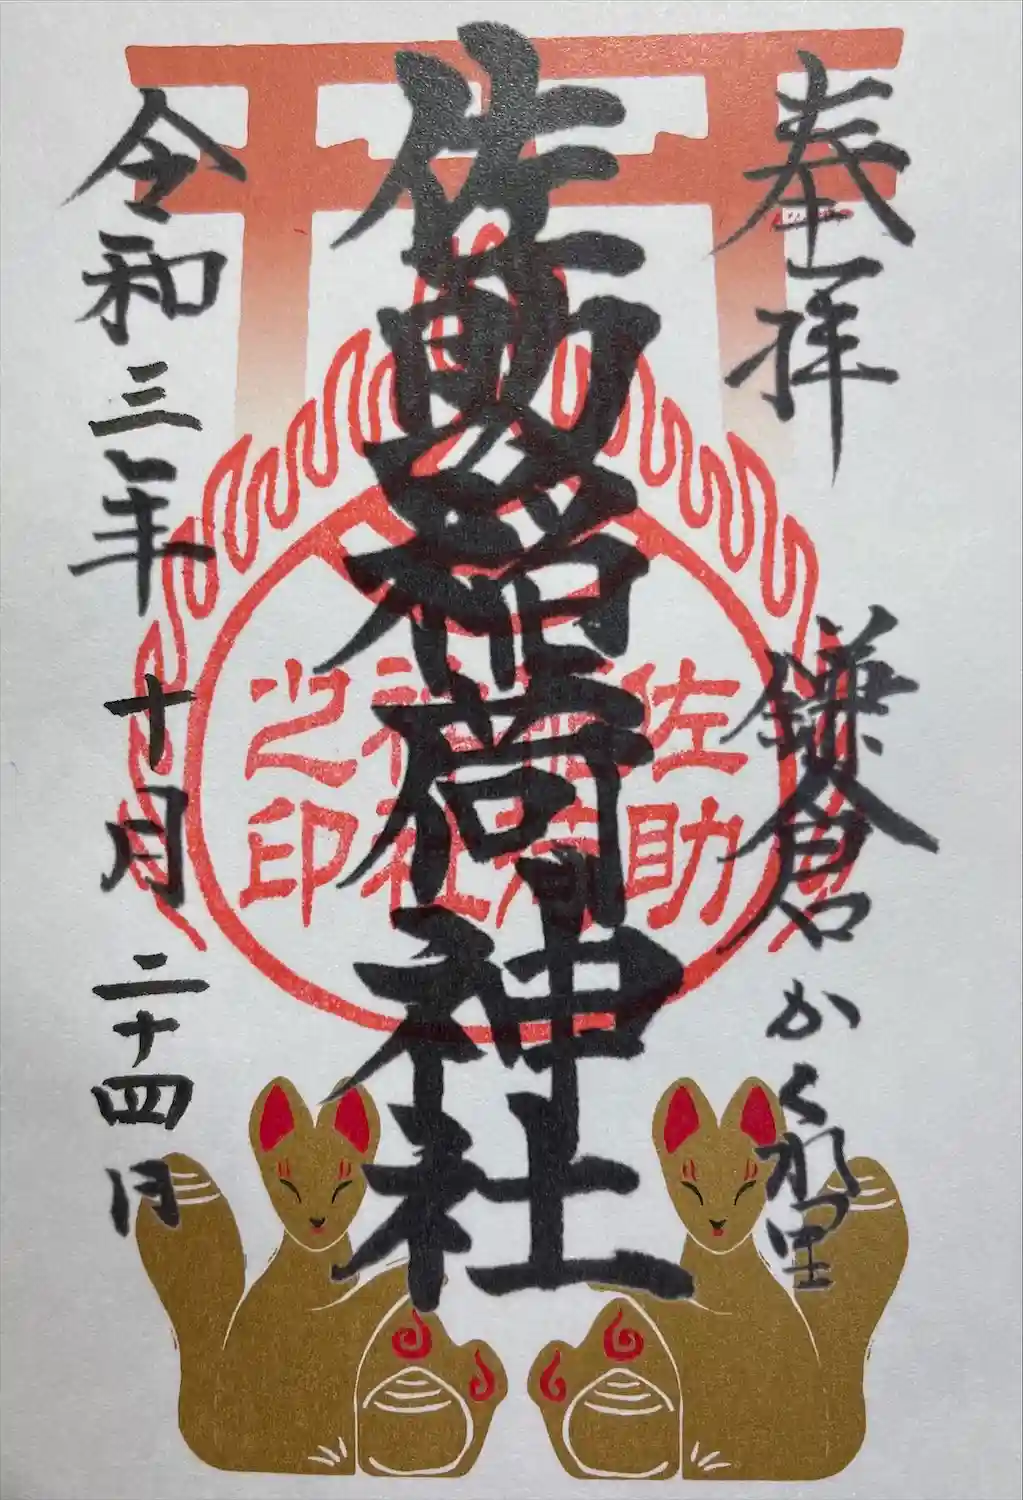 奉拝
鎌倉かくれ里
佐助稲荷神社
佐助稲荷神社之印
令和三年十月二十四日